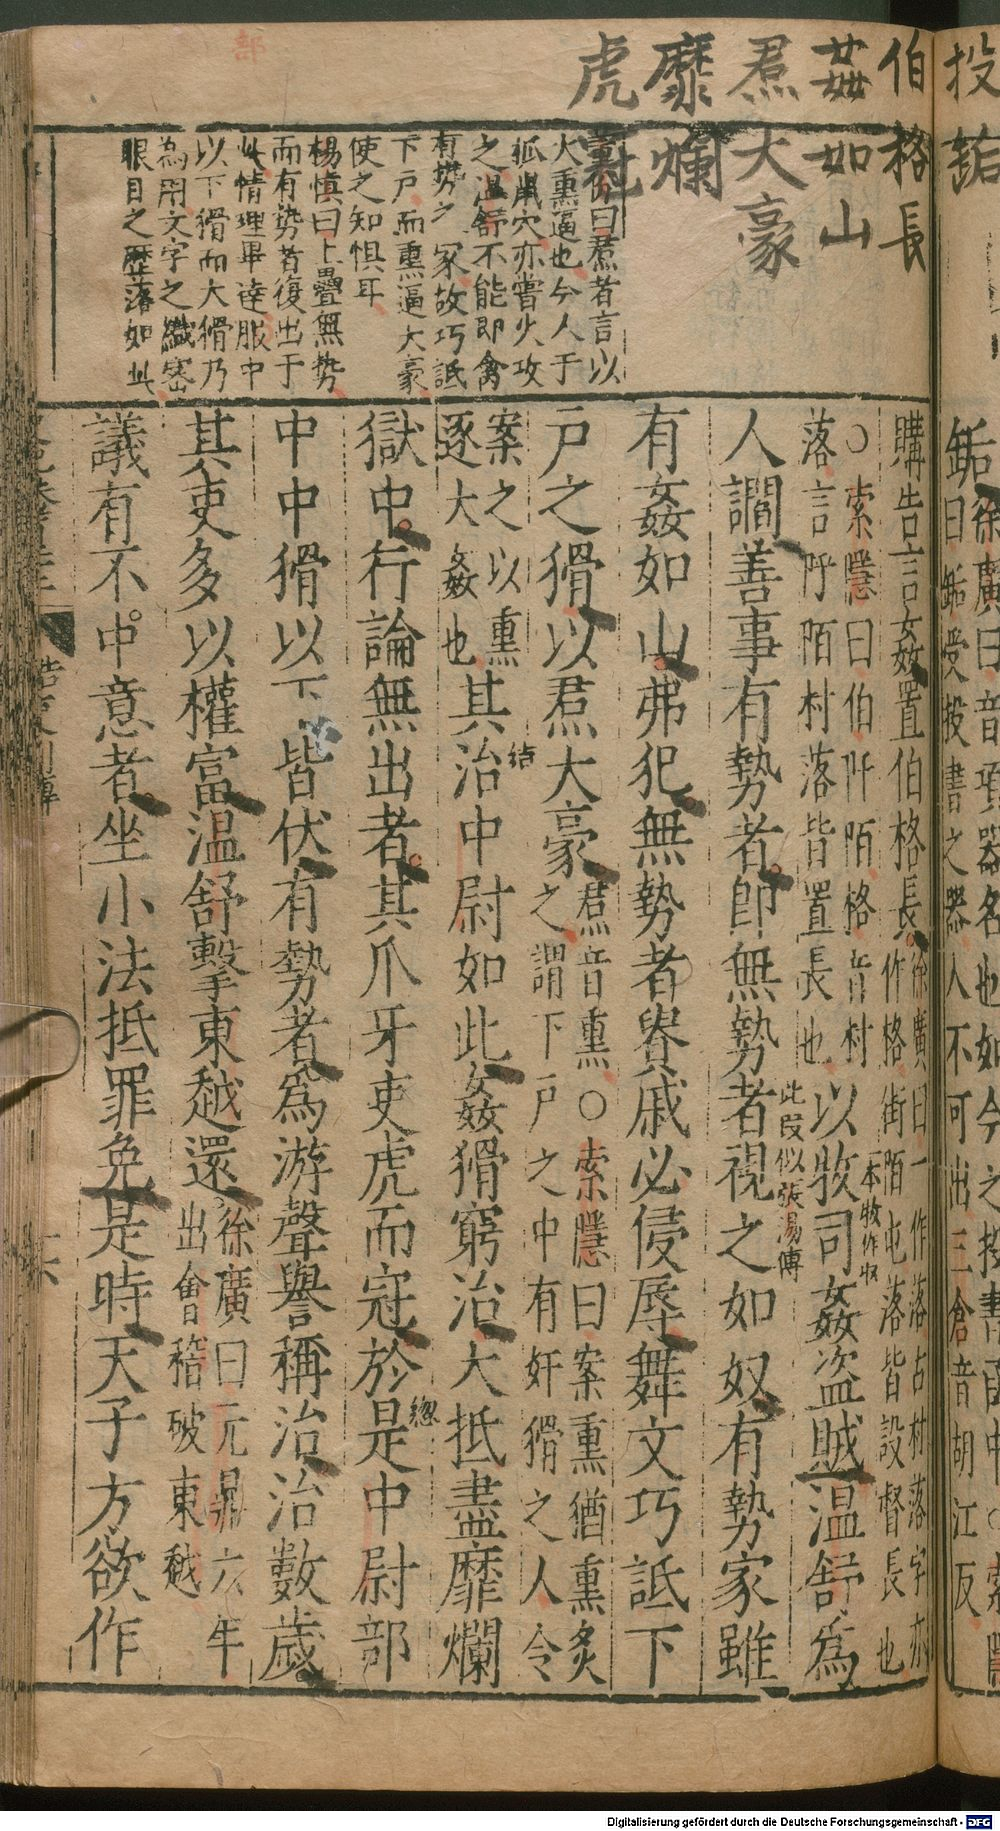 投銗
伯格長
姦如山
焄大豪
靡爛
虎冠
銗徐廣曰音項器名也如今之投書函中〇索隱
銗曰銗受投書之器人不可出三倉音胡江反
董份曰焄者言以
火熏逼也今人于
狐鼠穴亦嘗火攻
之溫舒不能即禽
有勢之家故巧詆
下戶而熏逼大豪
使之知惧耳
楊慎曰上疊無勢
而有势者復出于
此情理畢逹服中
以下猾而大猾乃
為用文字之織宻
眼目之歷落如此
購告言姦置伯格長徐廣曰一作落古村落字亦
作格街陌屯落皆設督長也
〇索隱曰伯阡陌格音村
落言阡陌村落皆置長也
以牧司姦盜賊溫舒爲
一本牧作收
此段似張湯傳
人讇善事有勢者即無勢者視之如奴有勢家雖
有姦如山弗犯無勢者貴戚必侵辱舞文巧詆下
戶之猾以焄大豪焄音熏〇索隱曰案熏猶熏炙
之謂下戶之中有奸猾之人令
案之以熏
逐大姦也
其治中尉如此姦猾窮治大抵盡靡爛
結
獄中行論無出者其爪牙吏虎而冠於是中尉部
總
中中猾以下皆伏有勢者為游聲譽稱治治數歲
其吏多以權富溫舒擊東越還徐廣曰元鼎六年
出會稽破東越
議有不中意者坐小法抵罪免是時天子方欲作
Digitalisierung gefördert durch die Deutsche Forschungsgemeinschaft - DFG